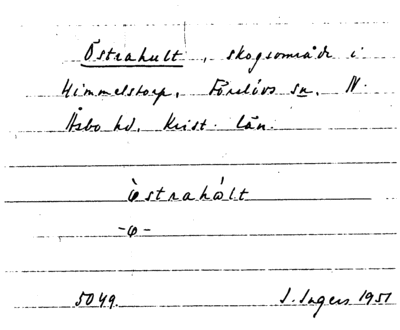 Östrahult, skogsområde i
Himmelstorp, Förslövs sn, N.
Åsbo hd. Krist. län.
òstrahált
-ò-
5049. 1951